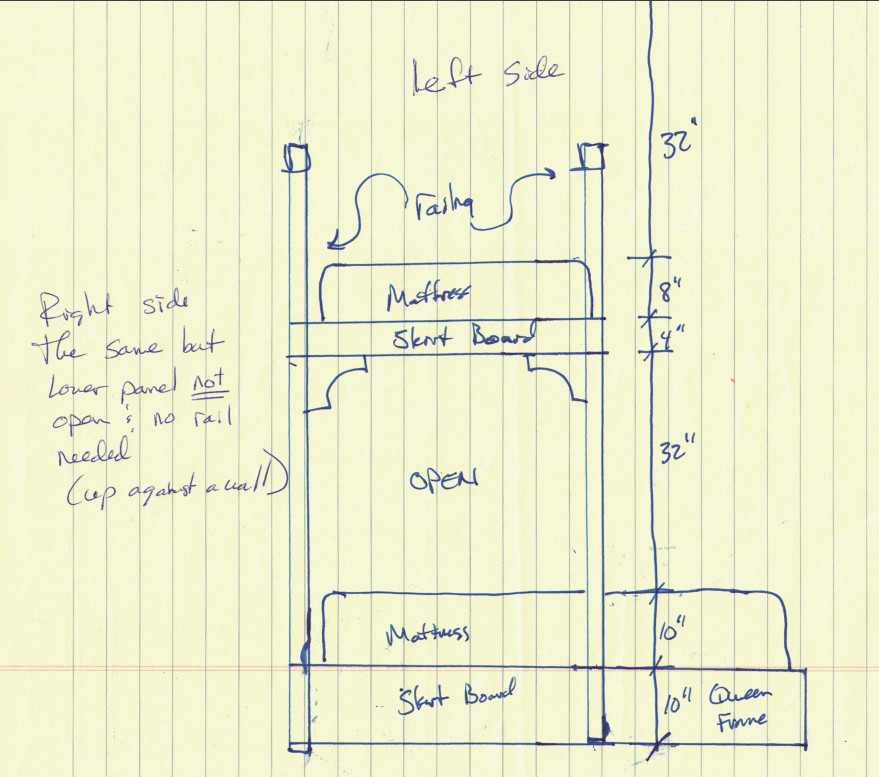 Left Side
32"
Railing
Mattress
8"
Skirt Board
4"
Right side
The same but
Lower panel not
open & no rail
needed
(up against a wall)
32"
OPEN
Mattress
10"
Skirt Board
10"
Queen
Frame